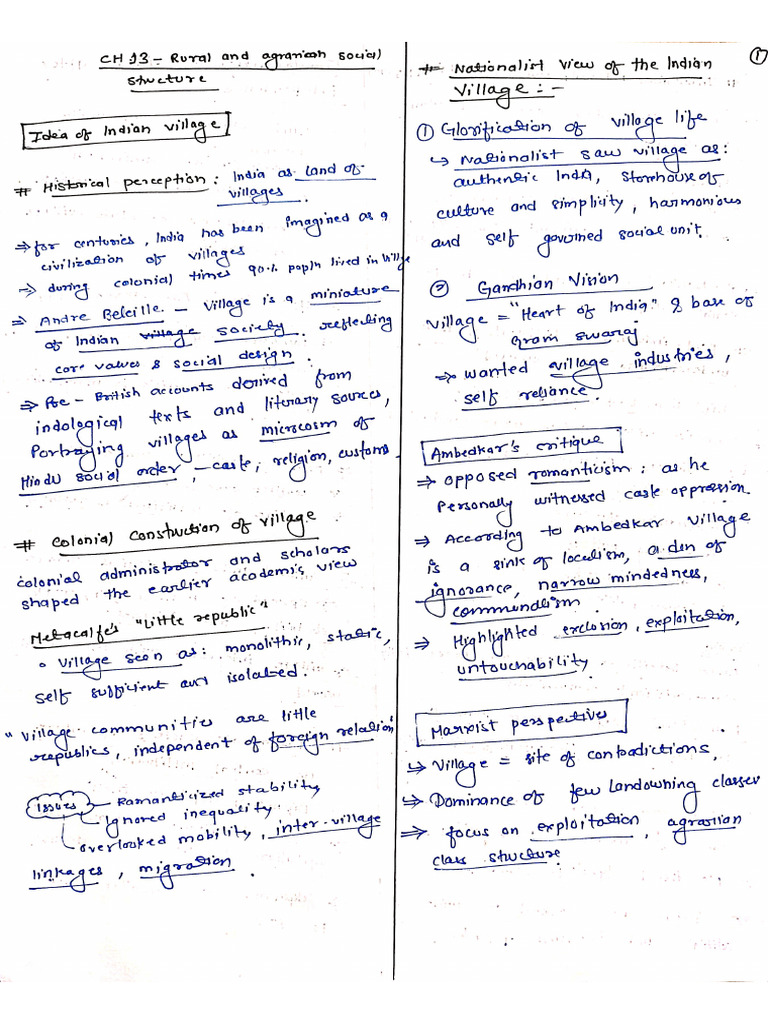 CH 13 - Rural and agrarian social
structure
Idea of Indian village
# Historical perception : India as land of
villages.
⇒ for centuries, India has been imagined as a
civilization of villages
→ during colonial times 90% popln lived in village
⇒ Andre Beteille - Village is a miniature
of Indian village society. reflecting
core values & social design.
⇒ Pre - British accounts derived from
indological texts and literary sources,
Portraying villages as microcosm of
Hindu social order, - caste, religion, customs
# Colonial Construction of village
colonial administrator and scholars
shaped the earlier academic view
Metacalfe's "Little republic"
• Village seen as: monolithic, static,
self sufficient and isolated.
"Village communities are little
republics, independent of foreign relation"
Issues - Ramanticized stability
Ignored inequality.
overlooked mobility, inter-village
linkages, migration
①
# Nationalist View of the Indian
Village : -
① Glorification of village life
↳ Nationalist saw village as:
authentic India, Storehouse of
culture and simplicity, harmonious
and self governed social unit.
② Gandhian Vision
Village = "Heart of India" & base of
gram swaraj
⇒ wanted village industries,
self reliance.
Ambedkar's critique
→ opposed romanticism : as he
Personally witnessed caste oppression
⇒ According to Ambedkar village
is a sink of localism, a den of
ignorance, narrow mindedness,
communalism.
⇒ Highlighted exclusion, exploitation,
untouchability
Marxist perspective
↳ Village = site of contradictions,
↳ Dominance of few landowning classes
⇒ focus on exploitation, agrarian
class structure